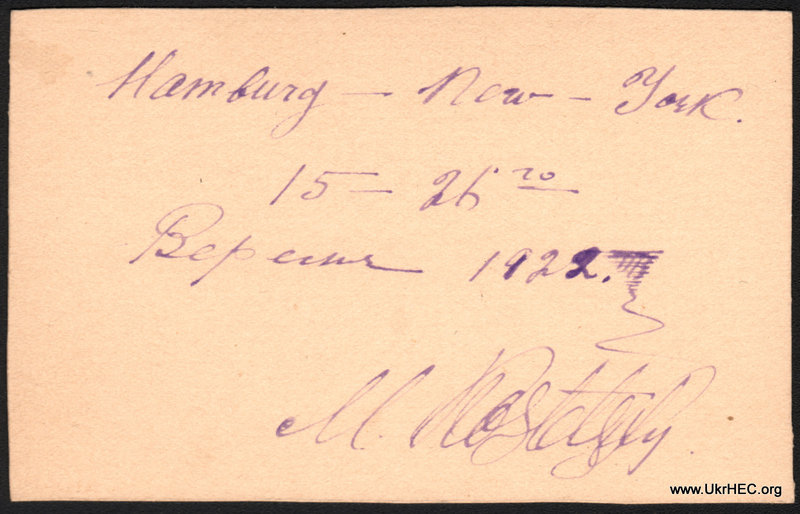 Hamburg — New — York.
15 — 26 го
Вересня 1922.
M.
www.UkrHEC.org